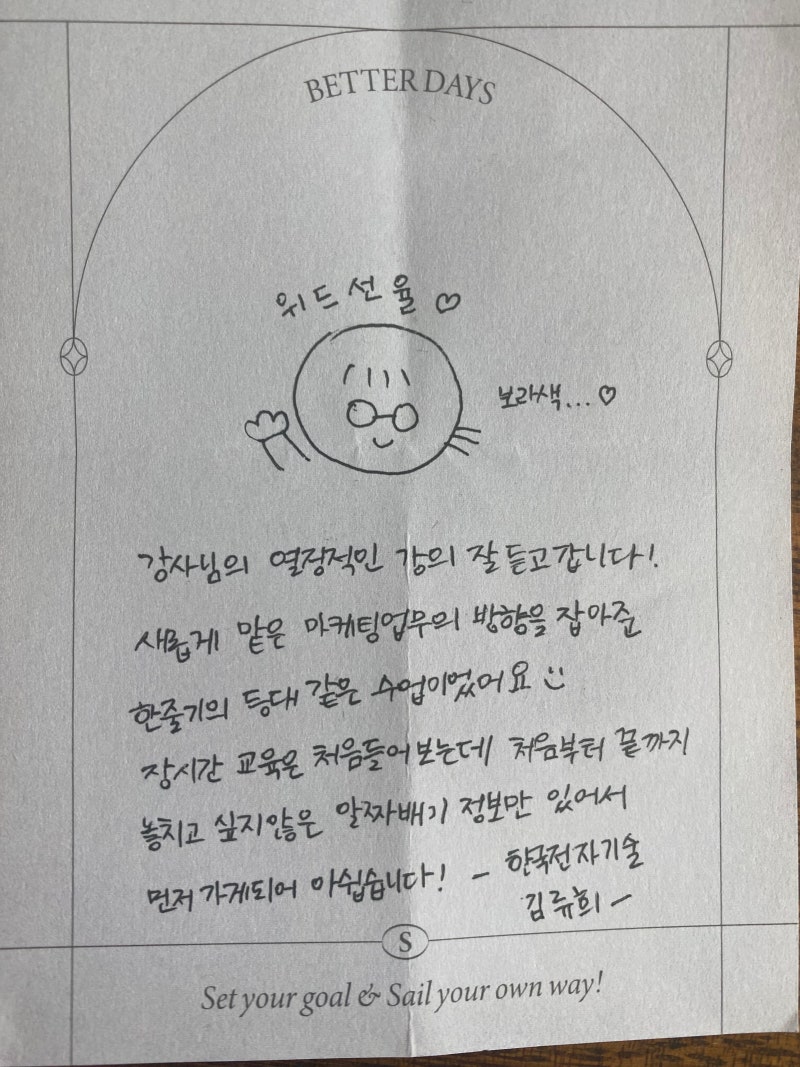 BETTER DAYS
위드선율♡
보라색...♡
강사님의 열정적인 강의 잘 듣고 갑니다!
새롭게 맡은 마케팅업무의 방향을 잡아준
한줄기의 등대 같은 수업이었어요
장시간 교육은 처음들어보는데 처음부터 끝까지
놓치고 싶지않은 알짜배기 정보만 있어서
먼저 가게되어 아쉽습니다! - 한국전자기술
김류희 -
S
Set your goal & Sail your own way!